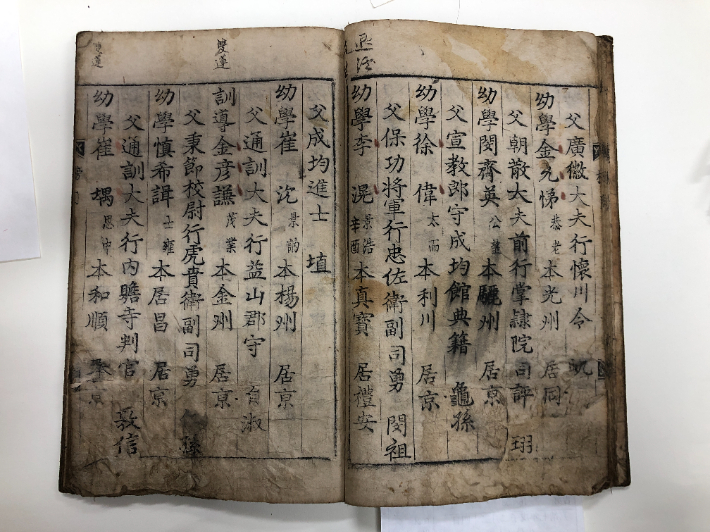 父廣徵大夫行懷川令 凱
幼學金允悌 恭老 本光州 居同
父朝散大夫前行掌隷院司評 珝
幼學閔齊英 公 本驪州 居京
父宣敎郎守成均館典籍 龜孫
幼學徐偉 太而 本利川 居京
父保功將軍行忠佐衛副司勇 閔祖
幼學李滉 景浩 辛酉 本真寶 居禮安
父成均進士 埴
幼學崔沆 景 本楊州 居京
父通訓大夫行益山郡守 自淑
雙蓮
訓導金彦謙 茂業 本金州 居京
父秉節校尉行虎賁衛副司勇 孫
幼學慎希諿 士雍 本居昌 居京
父通訓大夫行內贍寺判官 敦信
雙蓮
幼學崔堣 思中 本和順 京